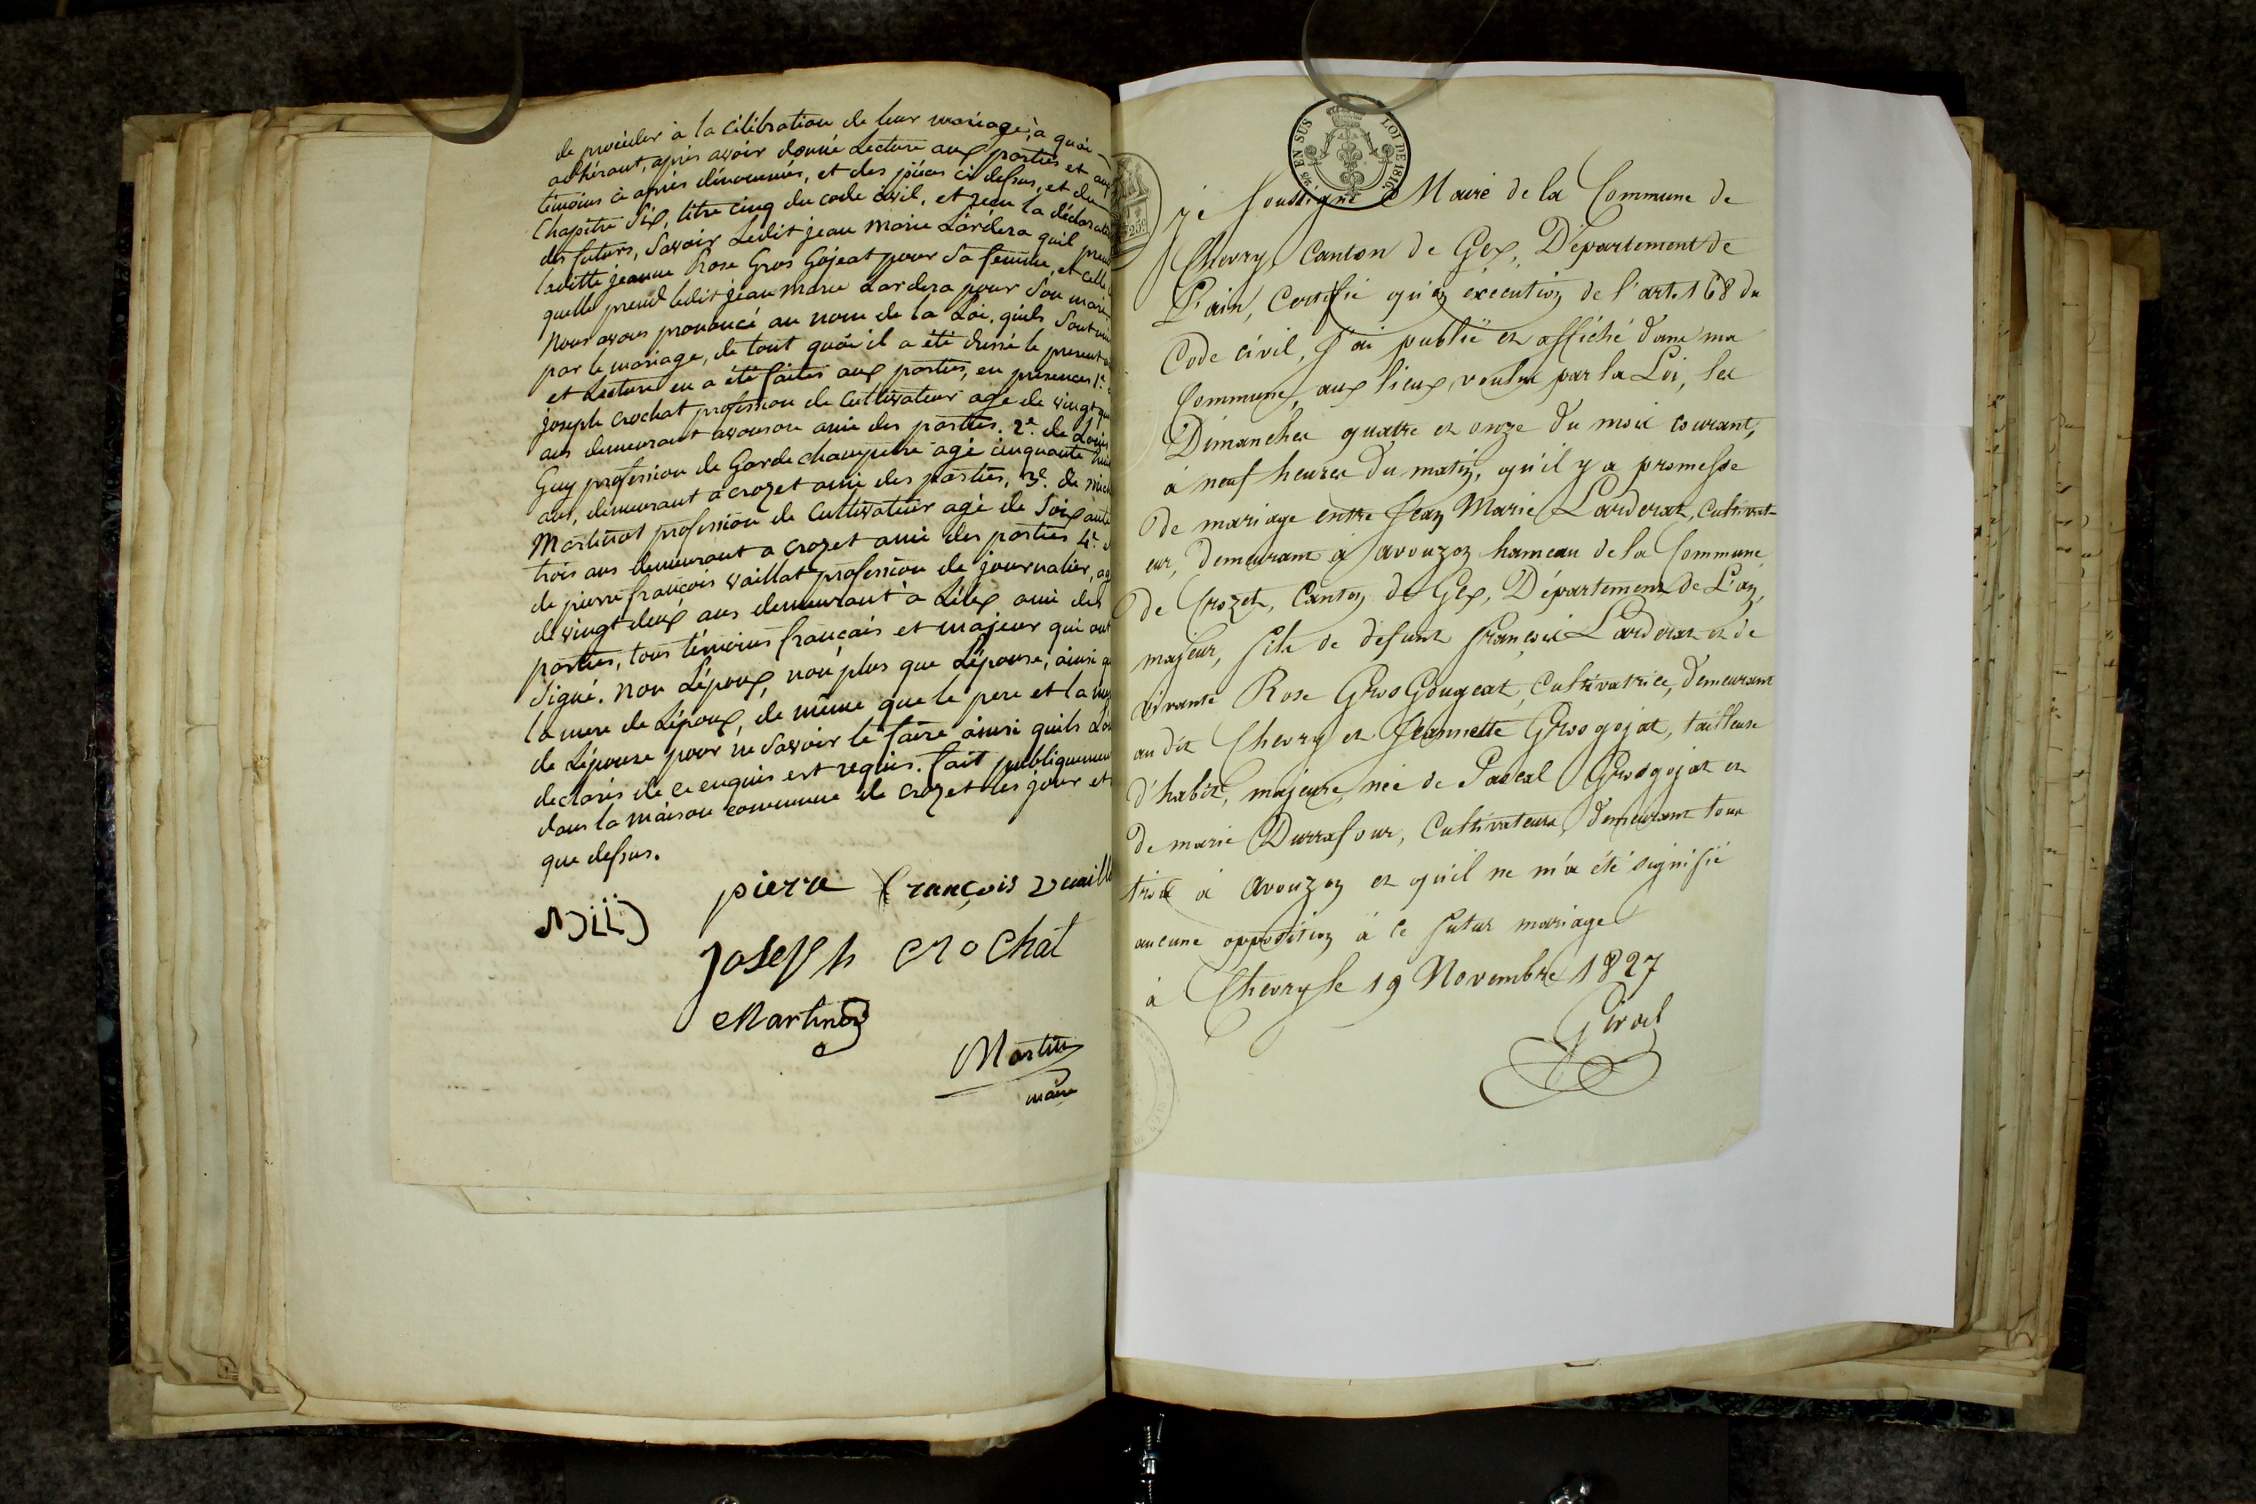 de procéder à la célébration de leur mariage, à quoi
adhérant, après avoir donné Lecture aux parties et aux
témoins ci après dénommés, et des pièces ci dessus, et du
Chapitre Six, titre cinq du code civil, et reçu la déclarat
des futurs, Savoir Ledit jean Marie Lardera quil prend
laditte jeanne Rose Gros Gojeat pour Sa femme, et celle
quelle prend ledit jean Marie Lardera pour Son mari
Nous avons prononcé au nom de la Loi, quils Sont
par le mariage, de tout quoi il a été dressé le present
et Lecture en a été faites aux parties, en presences 1.e
joseph crochat profession de Cultivateur age de vingt
ans demeurant avouson ami des parties. 2.e de Louis
Guy profession de Garde champetre agé cinquante
ans, demeurant a crozet ami des parties, 3.e de
Martinat profession de Cultivateur agé de Soixante
trois ans demeurant a crozet ami des parties 4.e
de pierre françois vaillat profession de journalier, ag
de vingt deux ans demeurant à Lélex ami des
parties, tous témoins français et majeur qui ont
Signé. Non Lépoux, non plus que Lépouse, ainsi q
la mere de Lépoux, de même que le pere et la
de Lépouse pour ne Savoir le faire ainsi quils L'on
declarés de ce enquis est requis. fait publiquement
dans la maison commune de crozet les jour et
que dessus.
pierre françois
Joseph Crochat
Martinat
Martin
maire
25 EN SUS LOI DE 1816.
je Soussigné Maire de la Commune de
Chevry Canton de Gex, Département de
L'ain, Certifie qu'en éxécution de l'art. 168 du
Code civil, j'ai publié et affiché dans ma
Commune, aux lieux voulus par la Loi, les
Dimanches quatre et onze du mois courant,
à neuf heures du matin, qu'il y a promesse
de mariage entre Jean Marie Larderat, Cultivat-
eur, demeurant à avouzon hameau de la Commune
de Crozet, Canton de Gex, Département de L'ain,
majeur, fils de défunt françois Larderat et de
vivante Rose Gros Gougeat, Cultivatrice, demeurant
au dit Chevry et Jeannette Grosgojat, tailleuse
d'habits, majeure, née de Pascal Grosgojat et
de marie Durrafour, Cultivateurs, demeurant tous
trois à avouzon et qu'il ne m'a été signifié
aucune opposition à ce futur mariage
à Chevry le 19 Novembre 1827
Girod